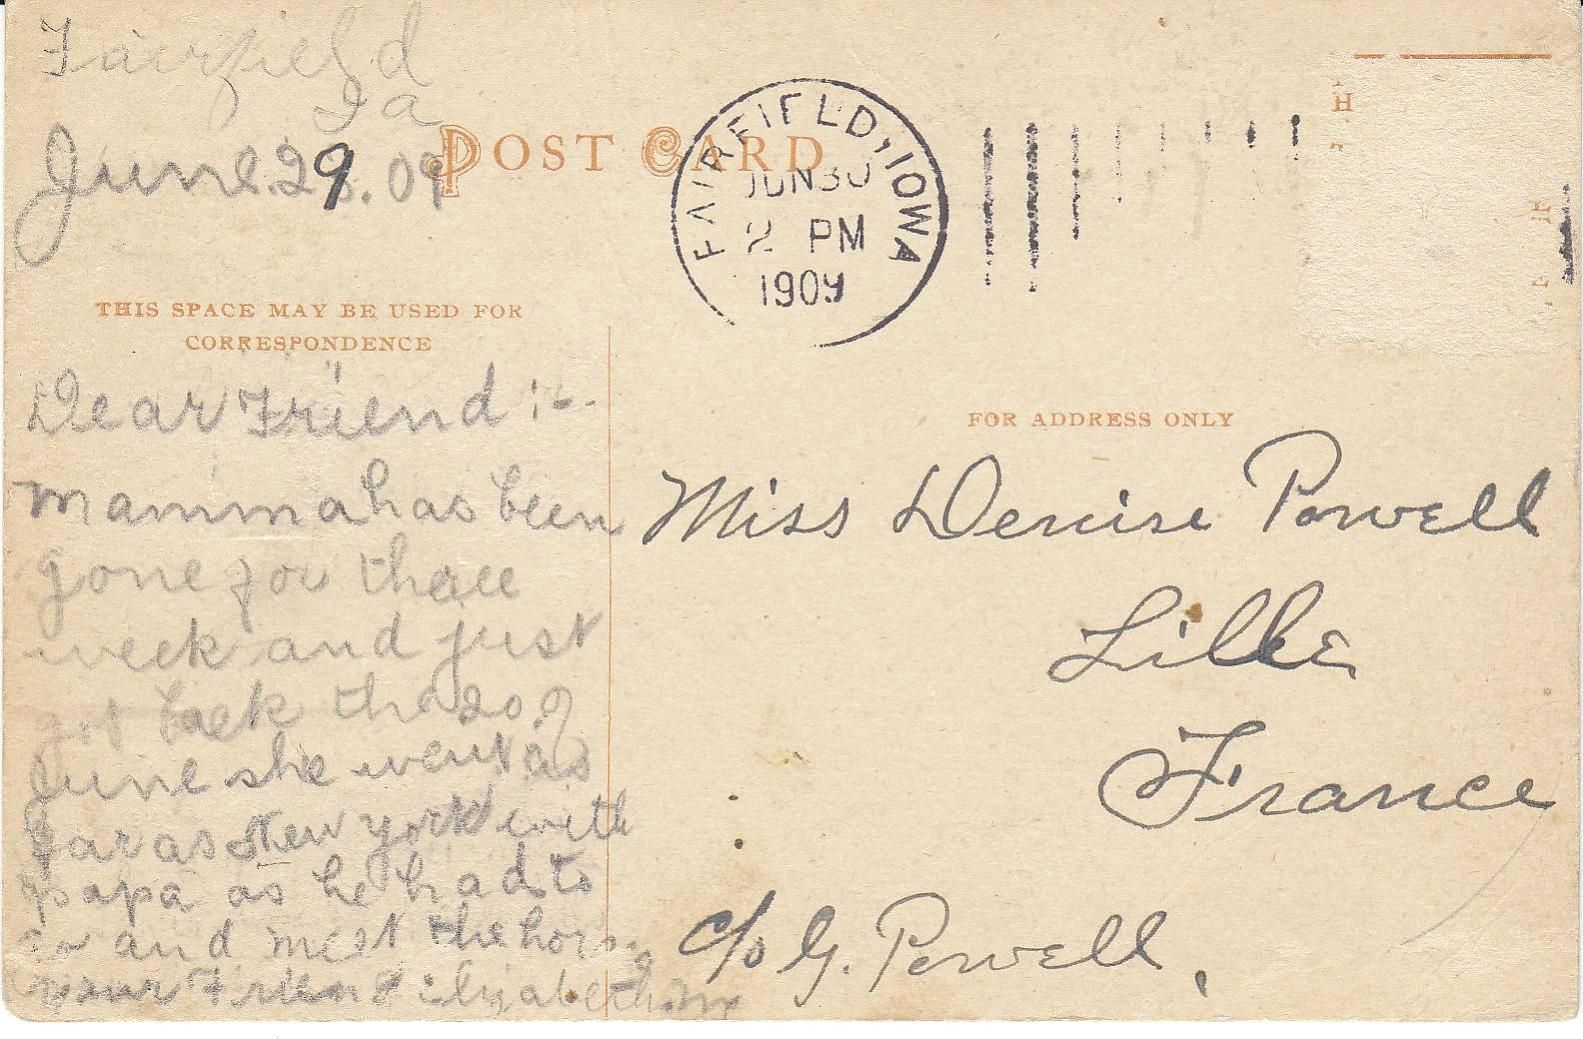 Fairfield
Ia
June. 29. 09
POST CARD
FAIRFIELD, IOWA
JUN 30
2 PM
1909
THIS SPACE MAY BE USED FOR
CORRESPONDENCE
Dear Friend :-
Mamma has been
gone for three
week and just
got back the 20 of
June she went as
far as New york with
papa as he had to
go and meet the hors
your Friend Elizabeth. M
FOR ADDRESS ONLY
Miss Denise Powell
Lille
France
c/o G. Powell,